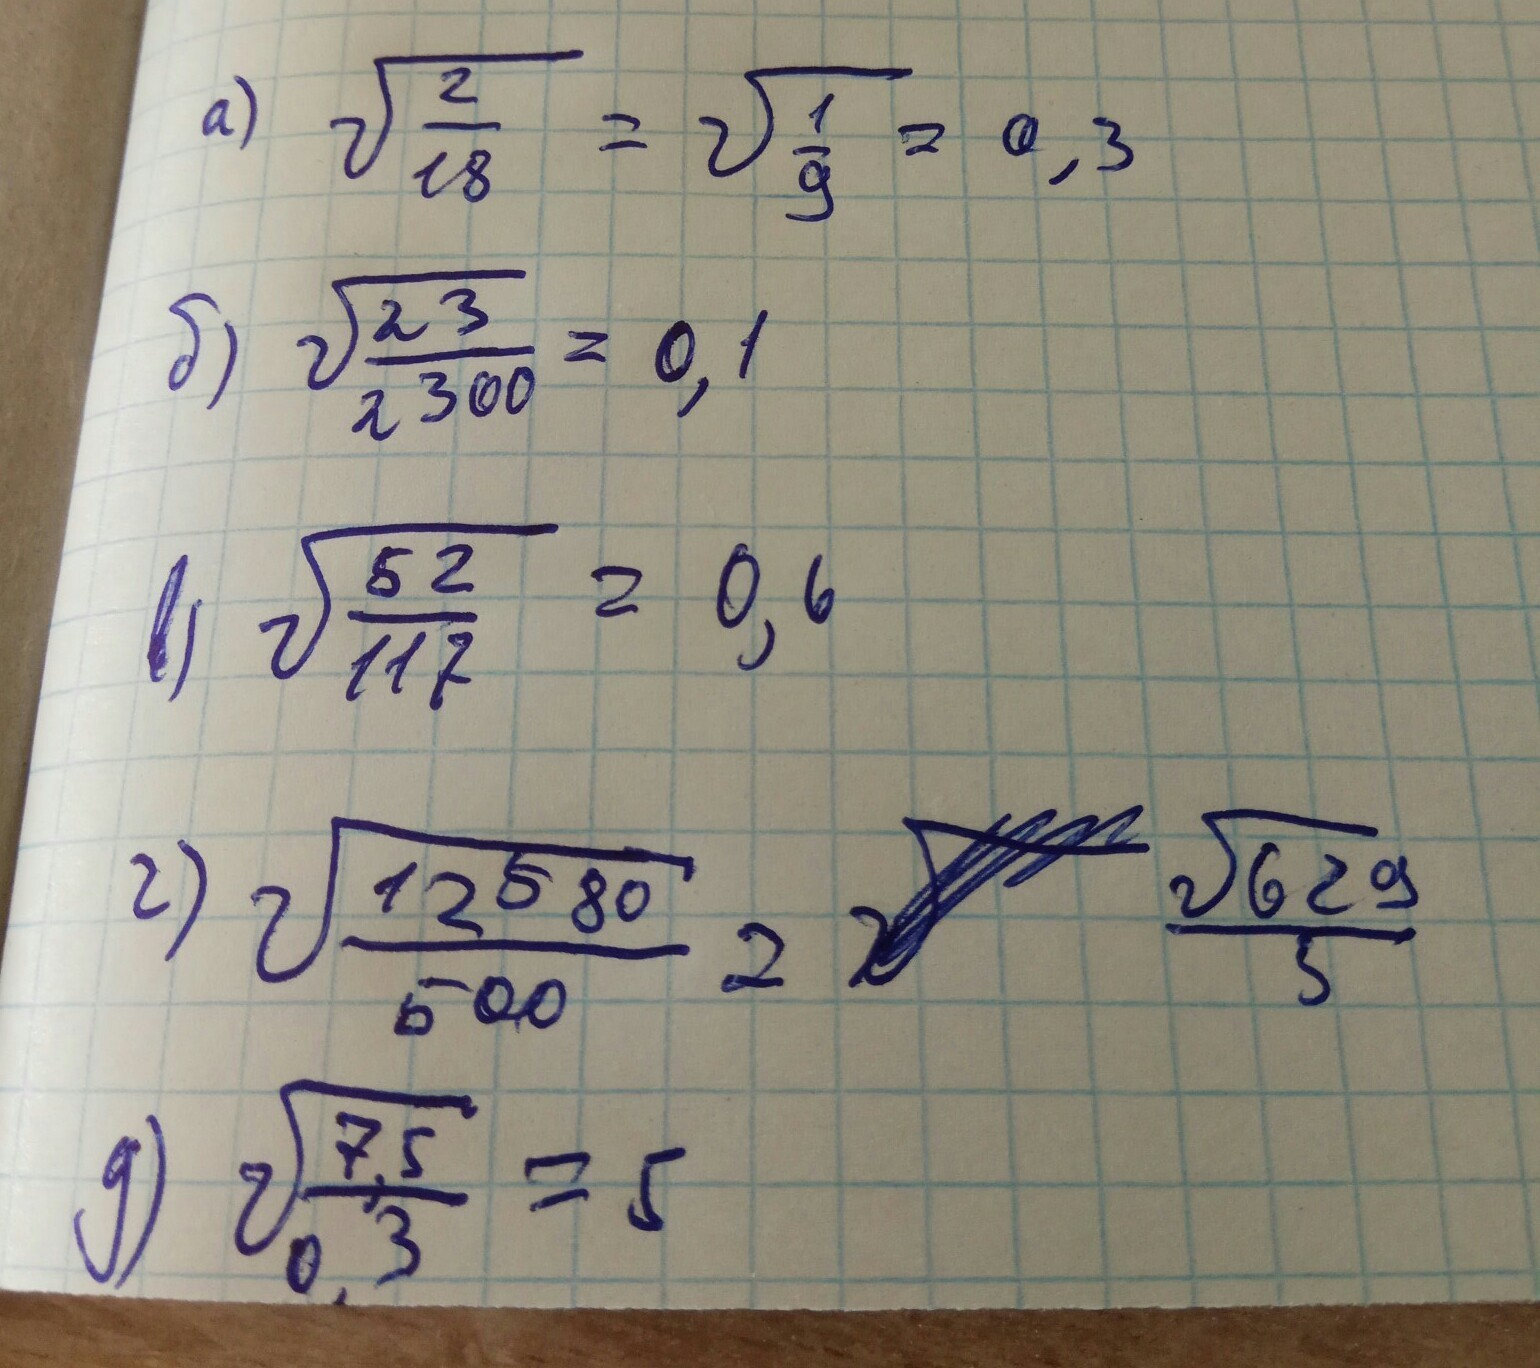 а) √2/18 = √1/9 = 0,3
б) √23/2300 = 0,1
в) √52/117 = 0,6
г) √12580/500 = √629/5
д) √7,5/0,3 = 5